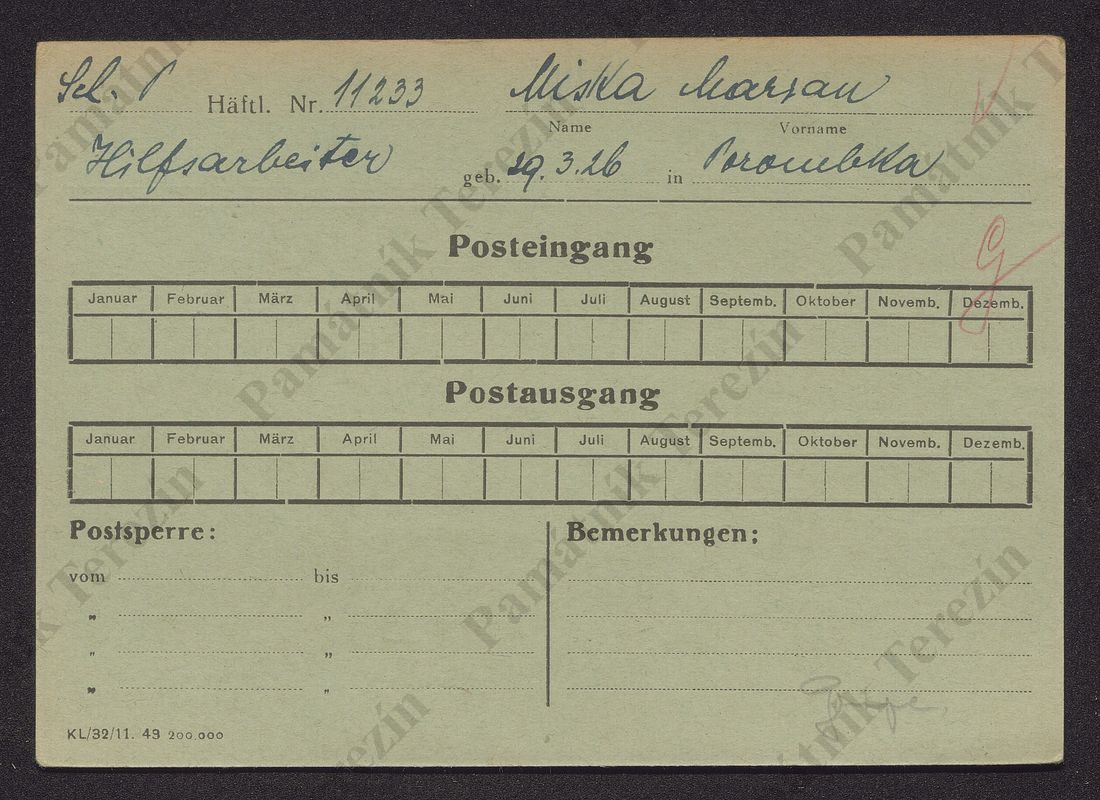 Sch. P Häftl. Nr. 11233 Miska Marian
Name Vorname
Hilfsarbeiter geb. 29.3.26 in Porombka
Posteingang
Januar Februar März April Mai Juni Juli August Septemb. Oktober Novemb. Dezemb.
Postausgang
Januar Februar März April Mai Juni Juli August Septemb. Oktober Novemb. Dezemb.
Postsperre: Bemerkungen:
vom bis
„ „
„ „
„ „
KL/32/11. 43 200.000
Památník Terezín